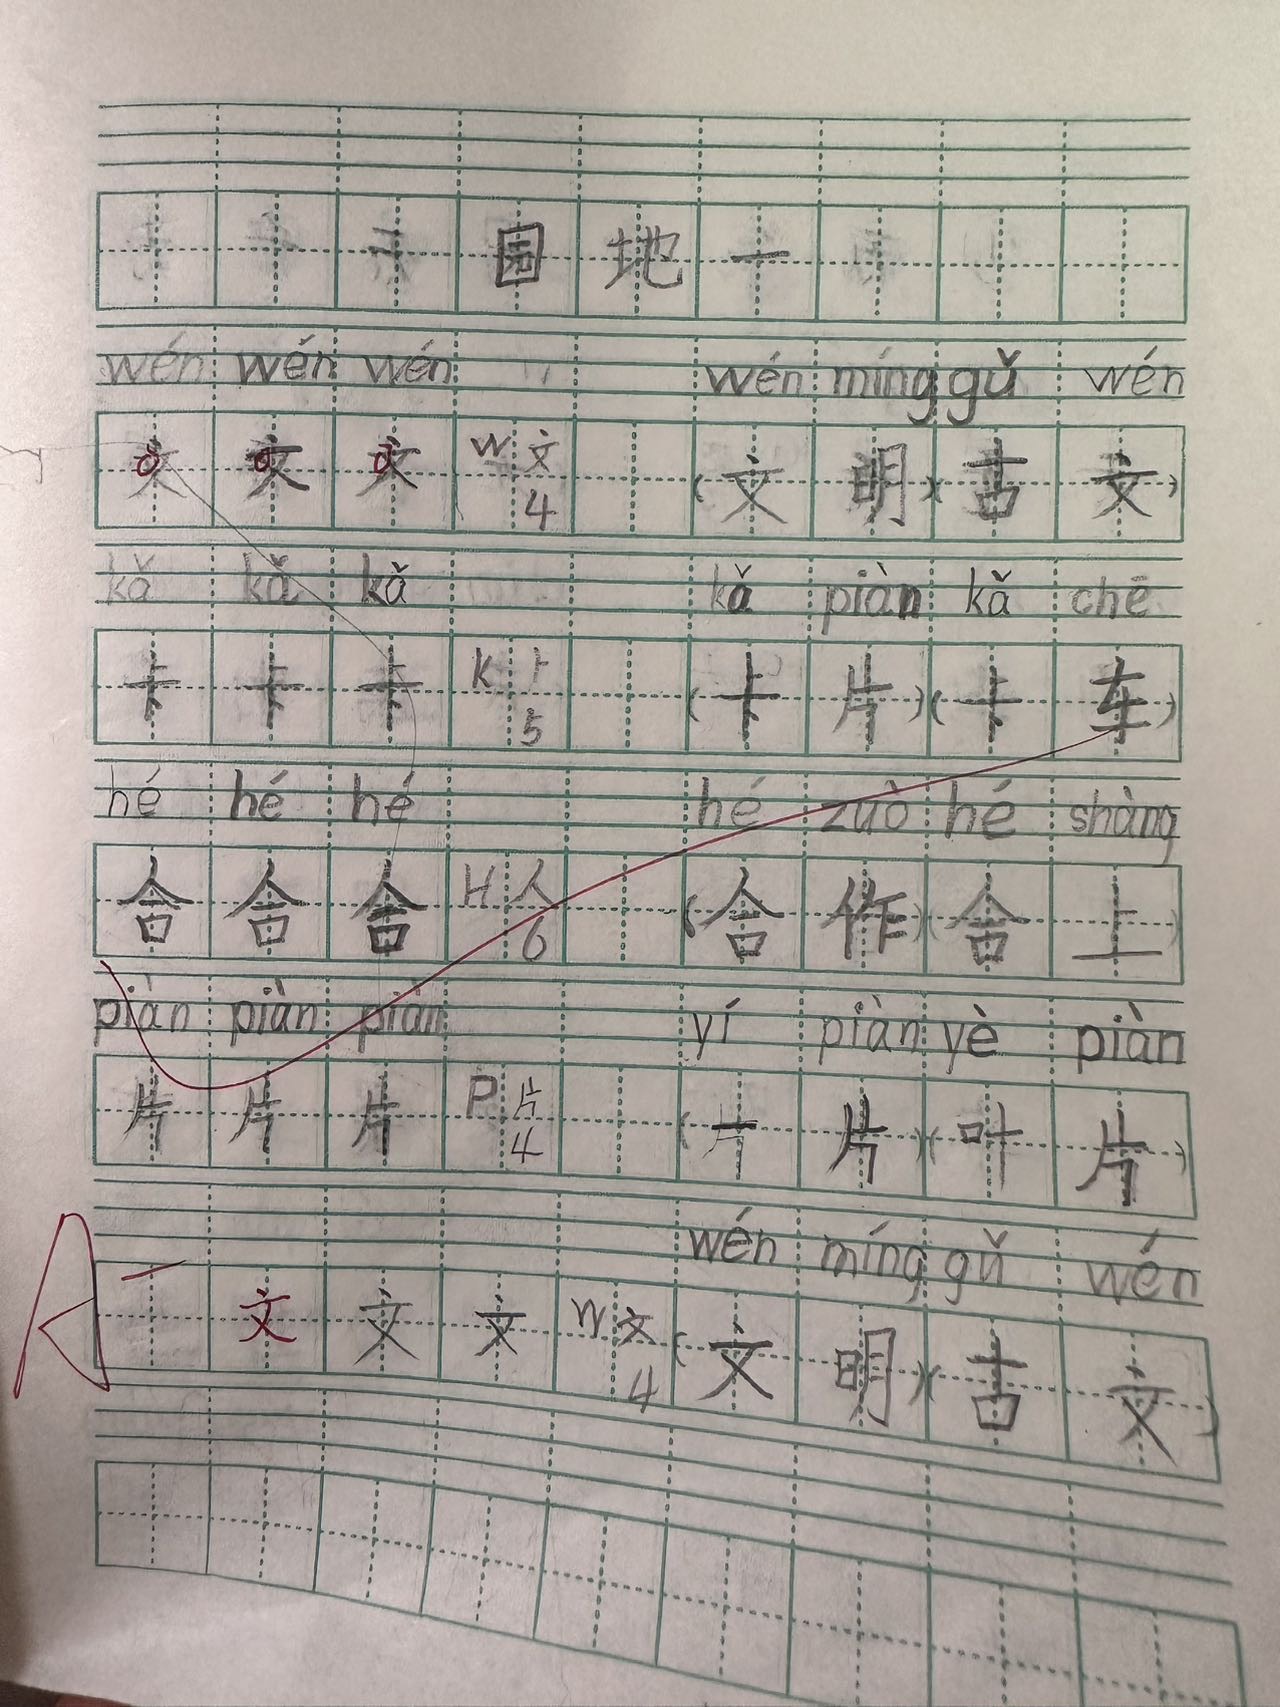 园地一
wén wén wén wén míng gǔ wén
文 文 文 W 文 4 (文明)(古文)
kǎ kǎ kǎ kǎ piàn kǎ chē
卡 卡 卡 K 卜 5 (卡片)(卡车)
hé hé hé hé zuò hé shàng
合 合 合 H 人 6 (合作)(合上)
piàn piàn piàn yí piàn yè piàn
片 片 片 P 片 4 (片)(叶片)
wén míng gǔ wén
A 文 文 文 W 文 4 (文明)(古文)